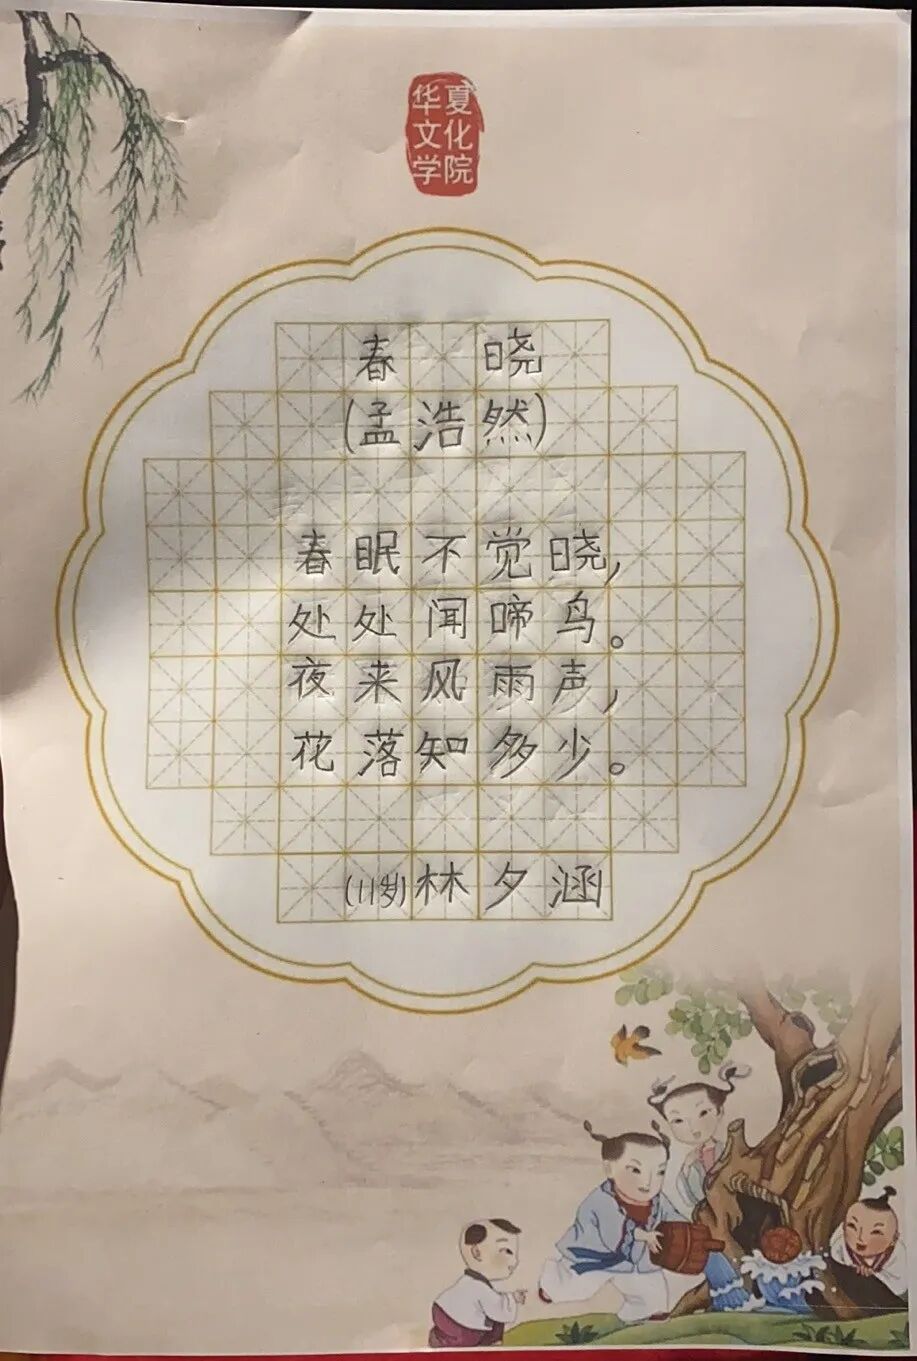 华夏
文化
学院
春 晓
(孟浩然)
春眠不觉晓,
处处闻啼鸟。
夜来风雨声,
花落知多少。
(11岁)林夕涵